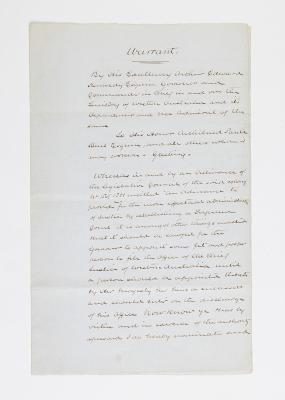 Warrant.
By His Excellency Arthur Edward
Kennedy Esquire Governor and
Commander in Chief in and over the
Territory of Western Australia and its
Dependencies and Vice Admiral of the
same
To His Honor Archibald Paull
Burt Esquire, and all others whom it
may concern - Greeting.
Whereas in and by an Ordinance of
the Legislative Council of the said colony
intituled "An Ordinance to
provide for the more effectual administration
of Justice by establishing a Supreme
Court it is among other things enacted
that it should be lawful for the
Governor to appoint some fit and proper
person to fill the office of the Chief
Justice of Western Australia until
a person should be appointed thereto
by Her Majesty Her heirs or successors
and should enter on the discharge
of his office Now Know ye that by
virtue and in exercise of the authority
aforesaid I do hereby nominate and